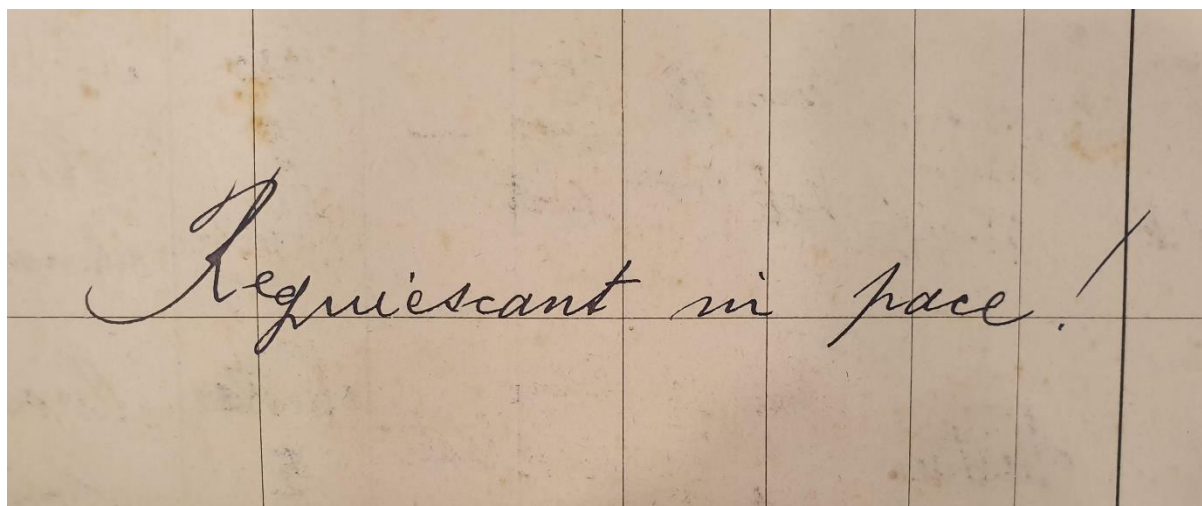 Requiescant in pace!